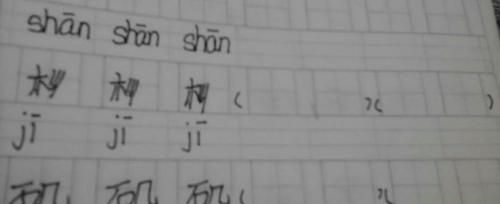 shān shān shān
栅 栅 栅 ( )( )
jī jī jī
矶 矶 矶 ( )(